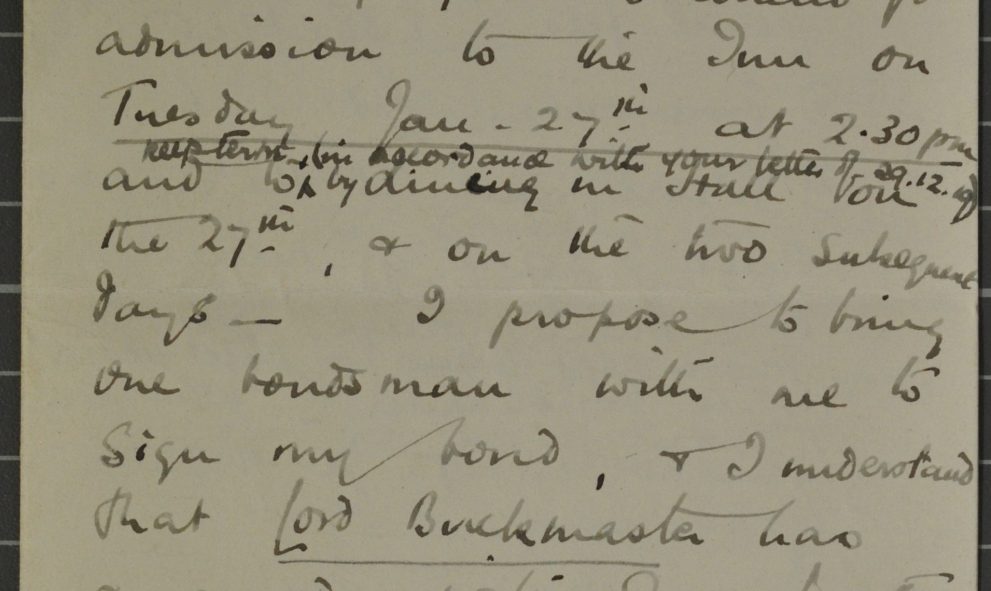 admission to the Inn on
Tuesday Jan - 27th at 2.30 pm
keep term, (in accordance with your letter of 29.12.19)
and to by dining in Hall on
the 27th, & on the two subequent
days — I propose to bring
one bondsman with me to
sign my bond, & I understand
that Lord Buckmaster has